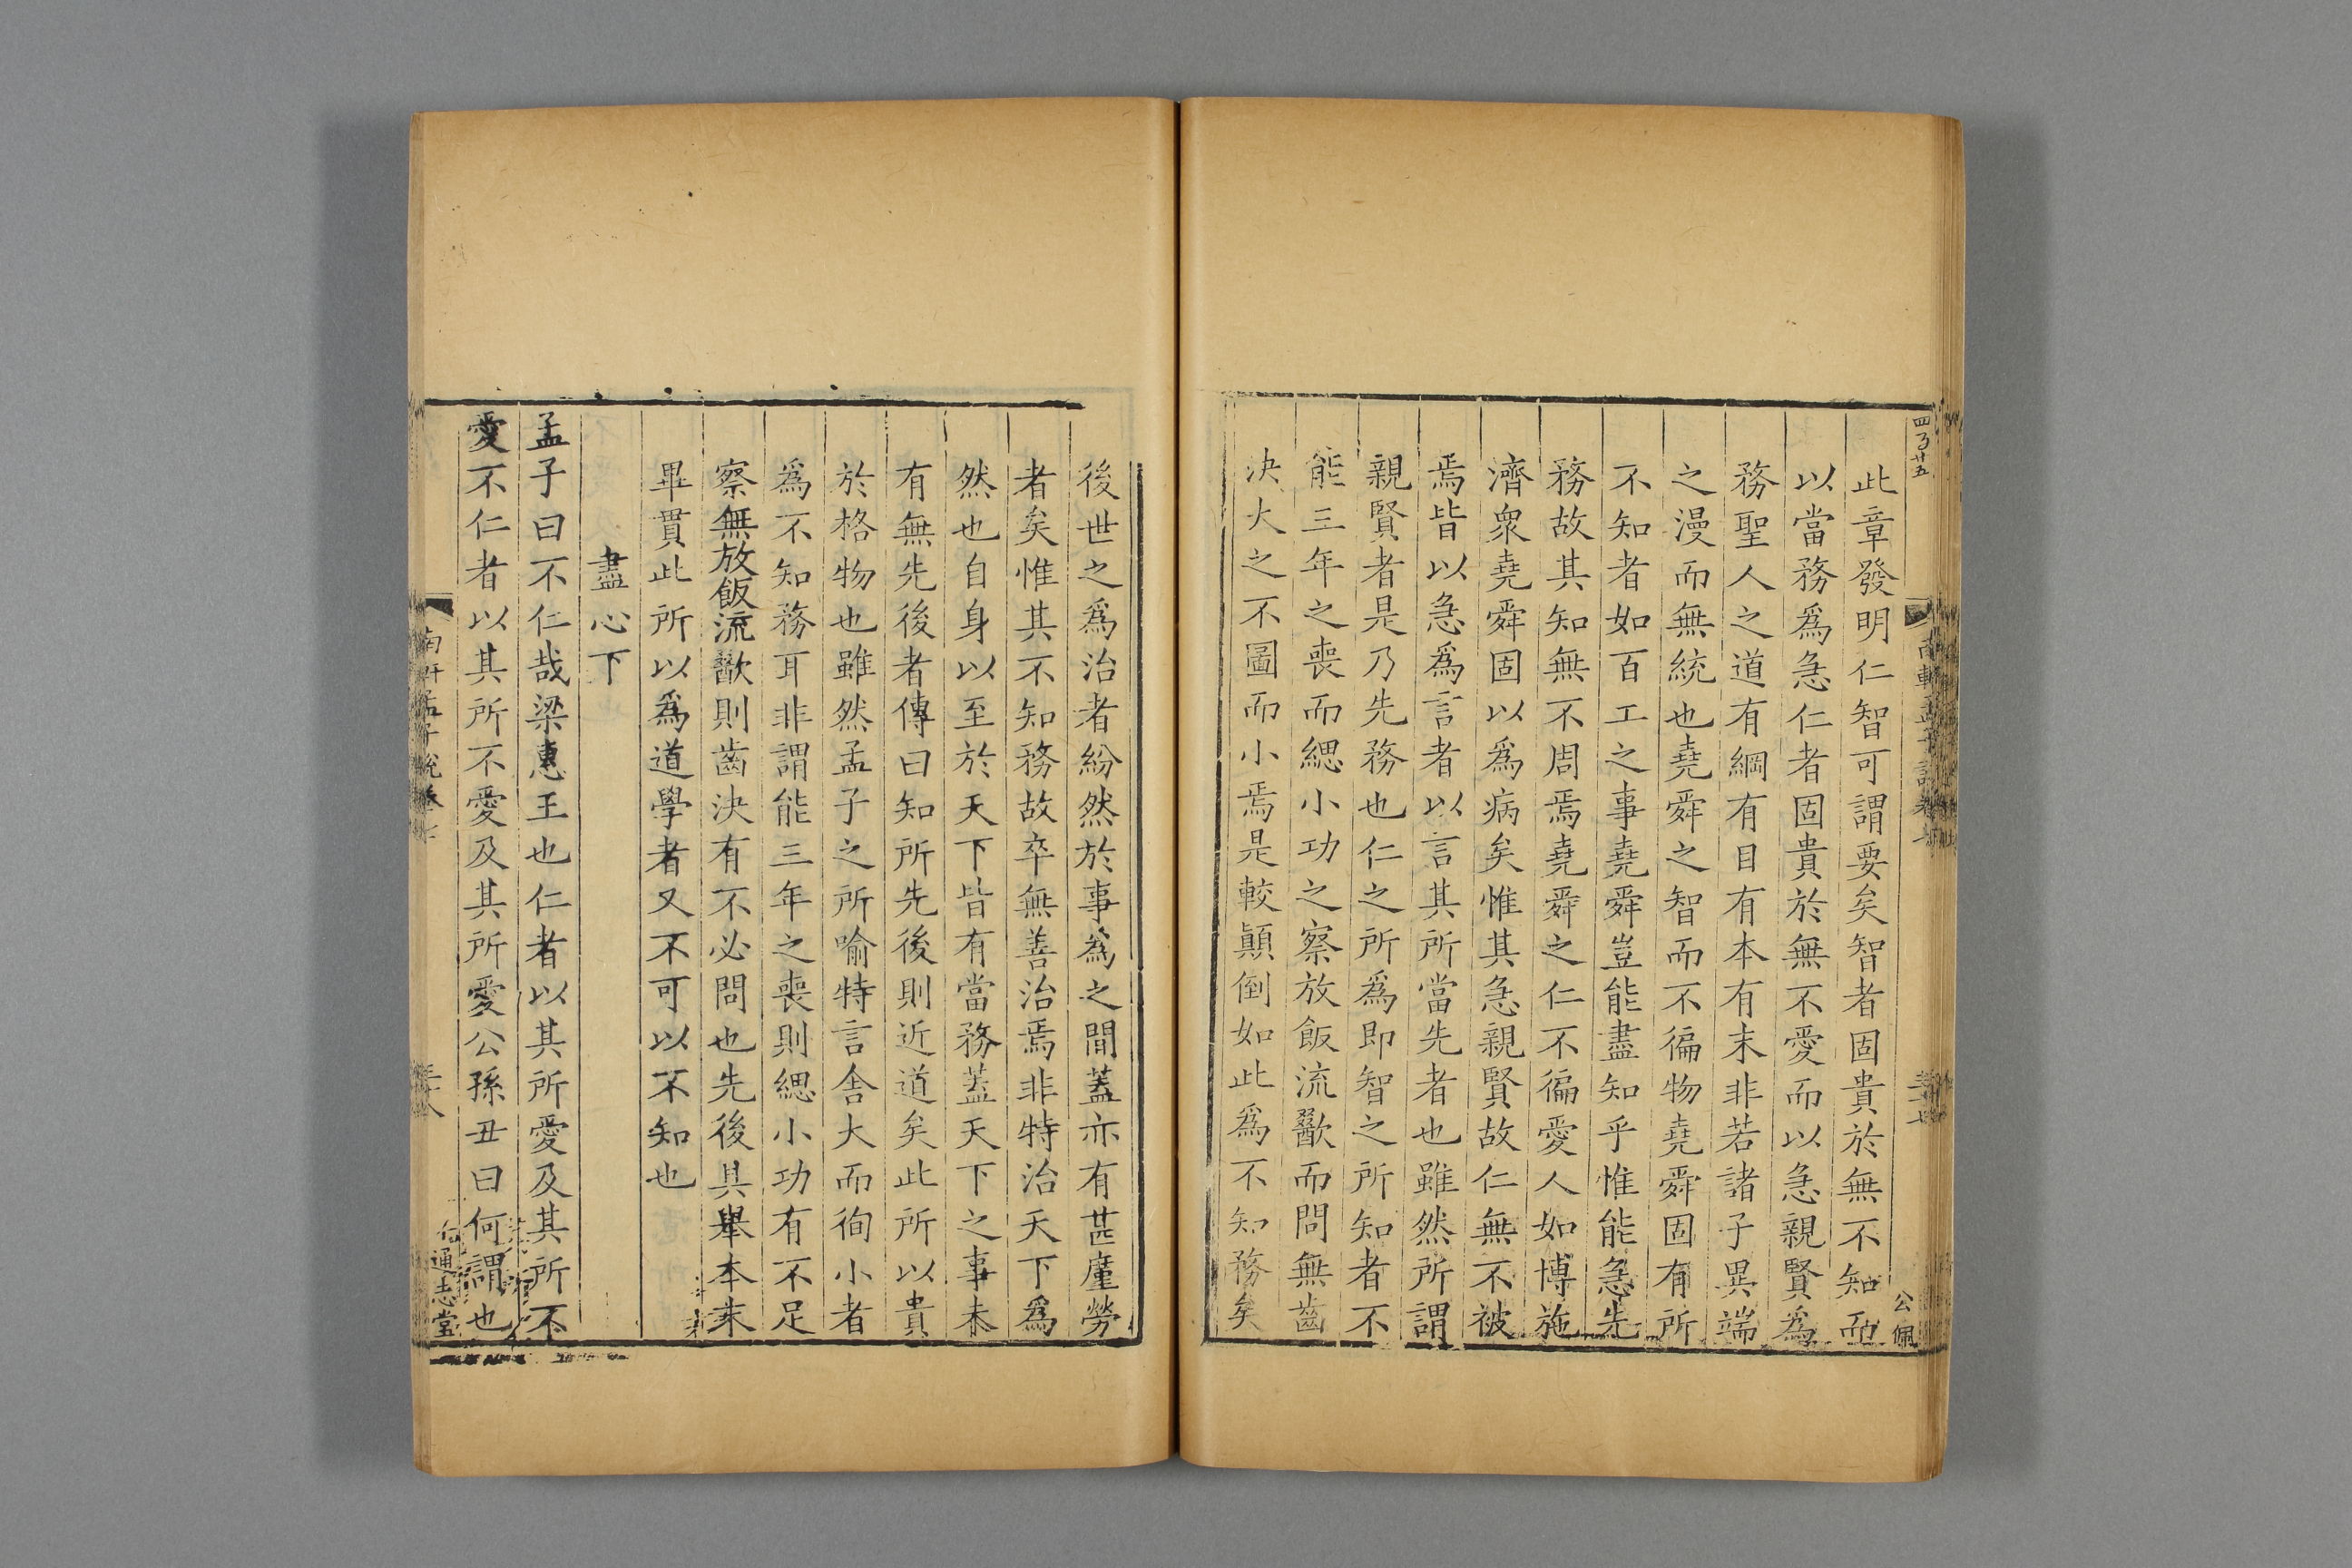 此章發明仁智可謂要矣智者固貴於無不知而
以當務爲急仁者固貴於無不愛而以急親賢爲
務聖人之道有綱有目有本有末非若諸子異端
之漫而無統也堯舜之智而不徧物堯舜固有所
不知者如百工之事堯舜豈能盡知乎惟能急先
務故其知無不周焉堯舜之仁不徧愛人如博施
濟衆堯舜固以爲病矣惟其急親賢故仁無不被
焉皆以急爲言者以言其所當先者也雖然所謂
親賢者是乃先務也仁之所爲即智之所知者不
能三年之喪而緦小功之察放飯流歠而問無齒
決大之不圖而小焉是較顛倒如此爲不知務矣
公佩
後世之爲治者紛然於事爲之間蓋亦有甚廑勞
者矣惟其不知務故卒無善治焉非特治天下爲
然也自身以至於天下皆有當務蓋天下之事未
有無先後者傳曰知所先後則近道矣此所以貴
於格物也雖然孟子之所喻特言舍大而徇小者
爲不知務耳非謂能三年之喪則緦小功有不足
察無放飯流歠則齒決有不必問也先後具舉本末
畢貫此所以爲道學者又不可以不知也
盡心下
孟子曰不仁哉梁惠王也仁者以其所愛及其所不
愛不仁者以其所不愛及其所愛公孫丑曰何謂也
通志堂